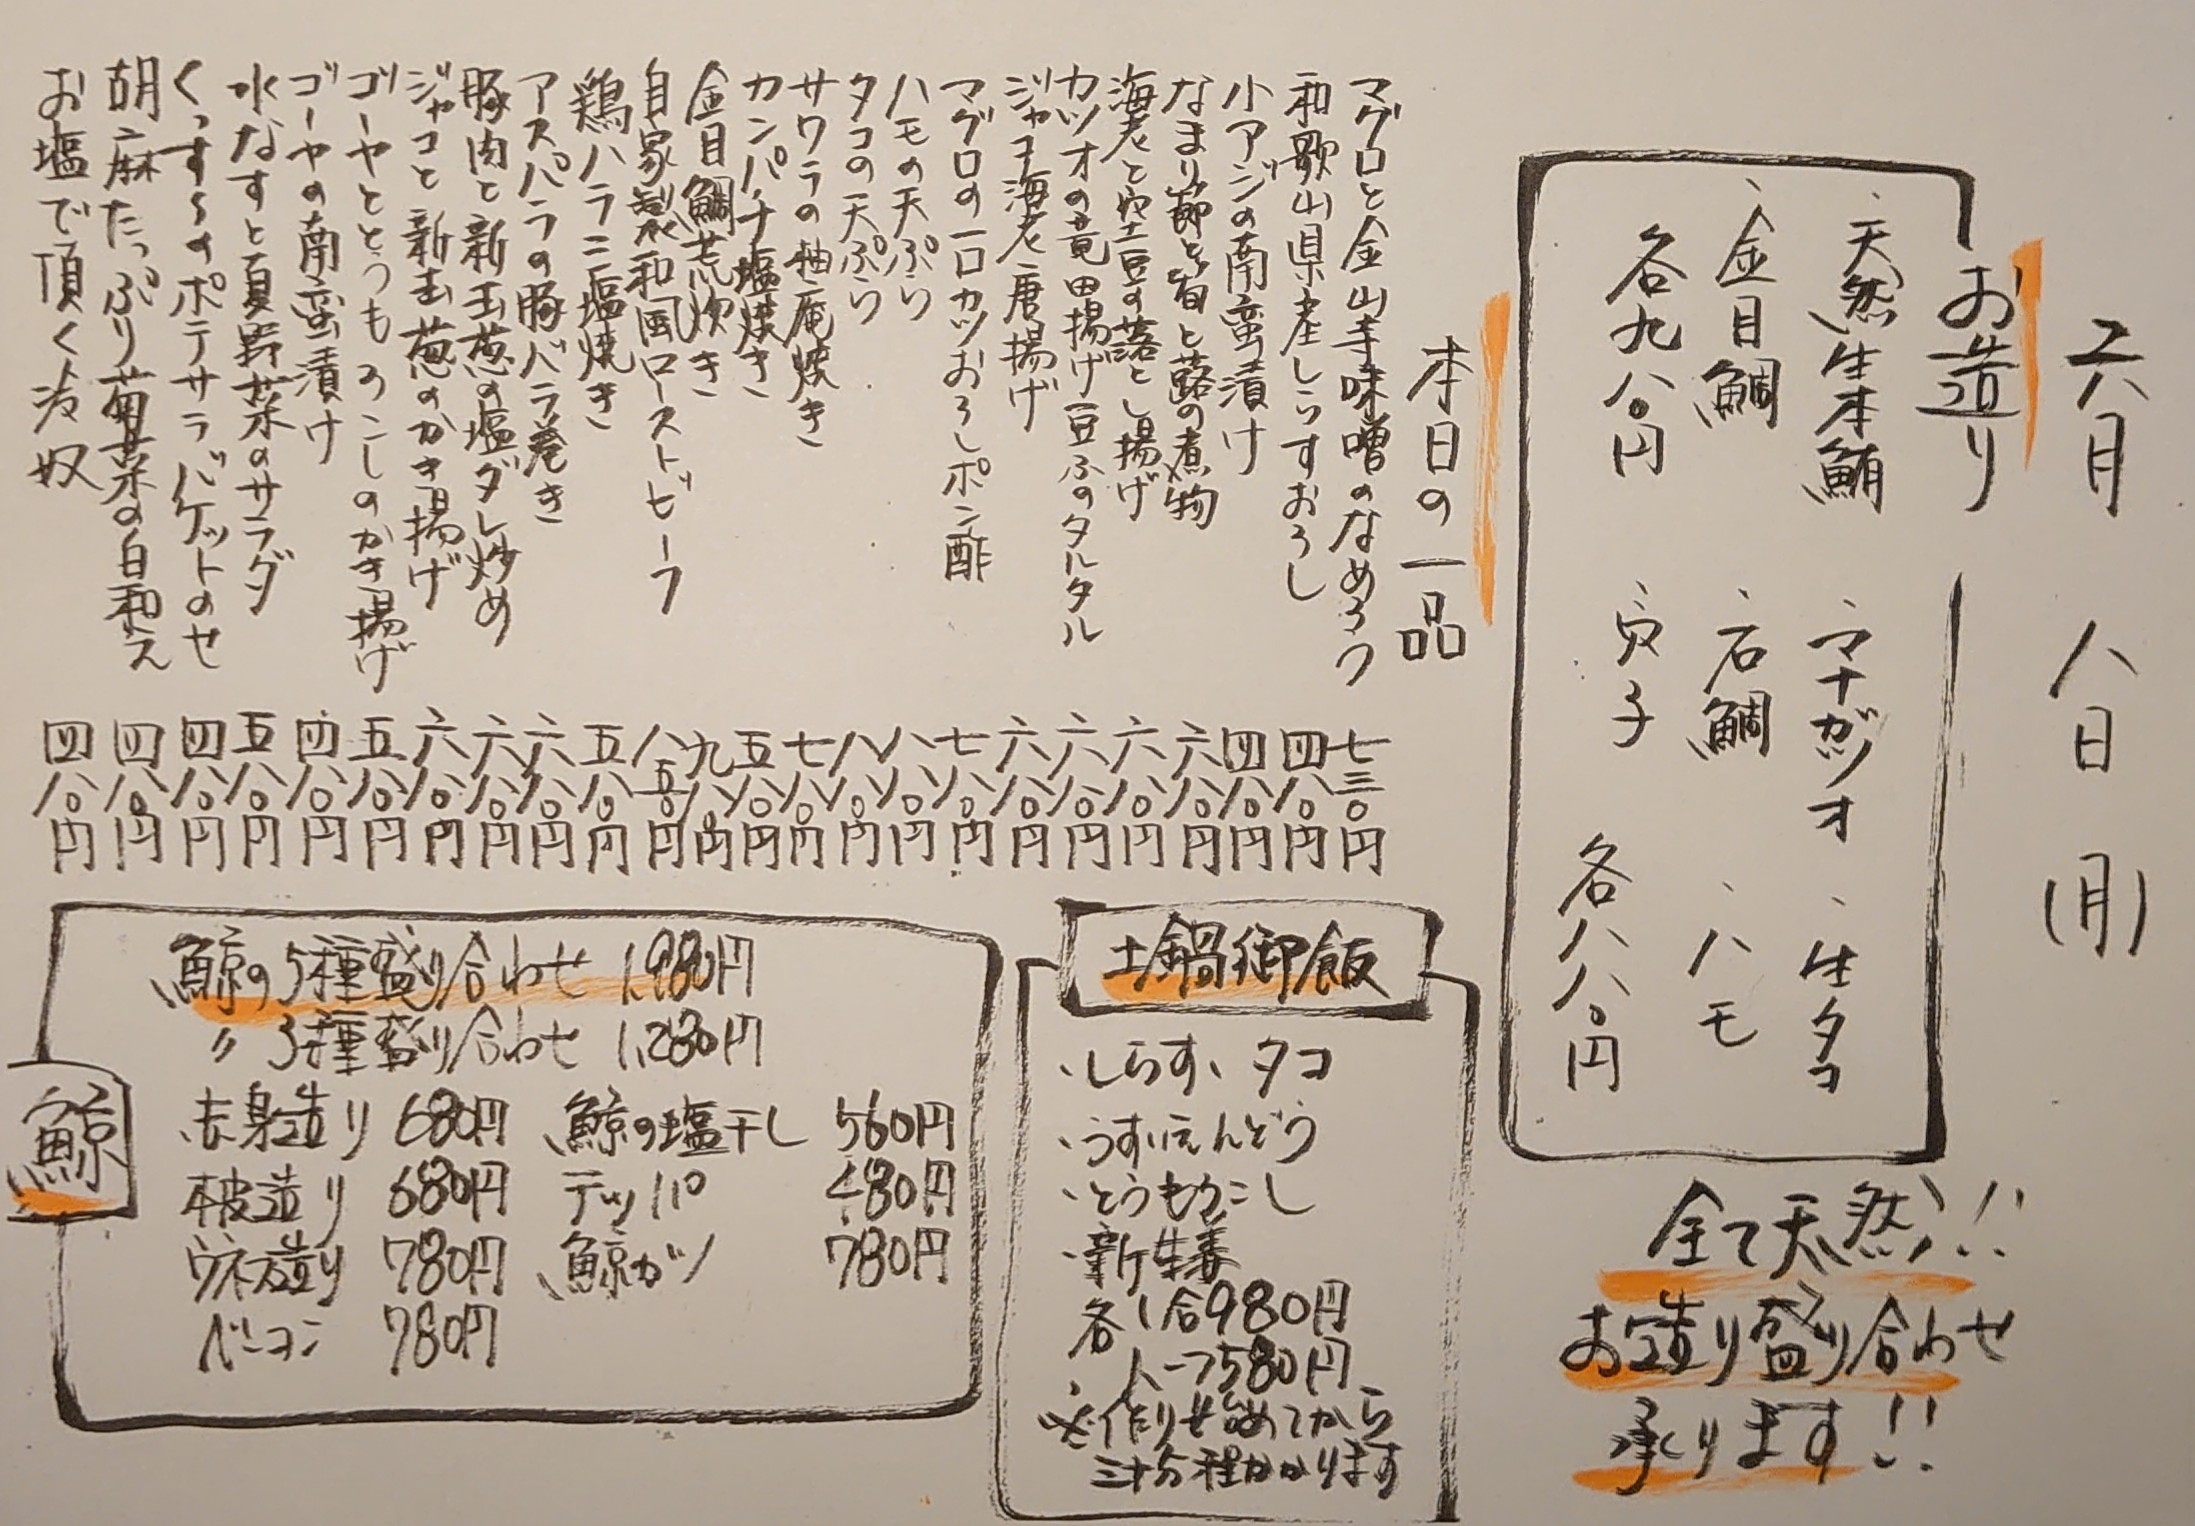 六月 八日(月)
お造り
・天然生本鮪 ・マナガツオ ・生タコ
・金目鯛 ・石鯛 ・ハモ
各九八〇円 ・穴子 各八八〇円
全て天然!!
お造り盛り合わせ
承ります!!
本日の一品
マグロと金山寺味噌のなめろう 七三〇円
和歌山県産しらすおろし 四八〇円
小アジの南蛮漬け 四八〇円
なまり節と筍と蕗の煮物 六八〇円
海老と空豆の落とし揚げ 六八〇円
カツオの竜田揚げ豆ふのタルタル 六八〇円
ジャコ海老唐揚げ 六八〇円
マグロの一口カツおろしポン酢 七八〇円
ハモの天ぷら 八八〇円
タコの天ぷら 八八〇円
サワラの柚庵焼き 七八〇円
カンパチ塩焼き 五八〇円
金目鯛荒炊き 九八〇円
自家製和風ローストビーフ 八五〇円
鶏ハラミ塩焼き 五八〇円
アスパラの豚バラ巻き 六八〇円
豚肉と新玉葱の塩ダレ炒め 六八〇円
ジャコと新玉葱のかき揚げ 六八〇円
ゴーヤととうもろこしのかき揚げ 五八〇円
ゴーヤの南蛮漬け 四八〇円
水なすと夏野菜のサラダ 五八〇円
くっすーのポテサラバケットのせ 四八〇円
胡麻たっぷり菊菜の白和え 四八〇円
お塩で頂く冷奴 四八〇円
土鍋御飯
・しらす、タコ
・うすいえんどう
・とうもろこし
・新生姜
各 1合980円
ハーフ580円
※作り始めてから
三十分程かかります
鯨
鯨の5種盛り合わせ 1,980円
〃 3種盛り合わせ 1,280円
赤身造り 680円 鯨の塩干し 560円
本皮造り 680円 テッパ 480円
ウネ造り 780円 鯨カツ 780円
ベーコン 780円